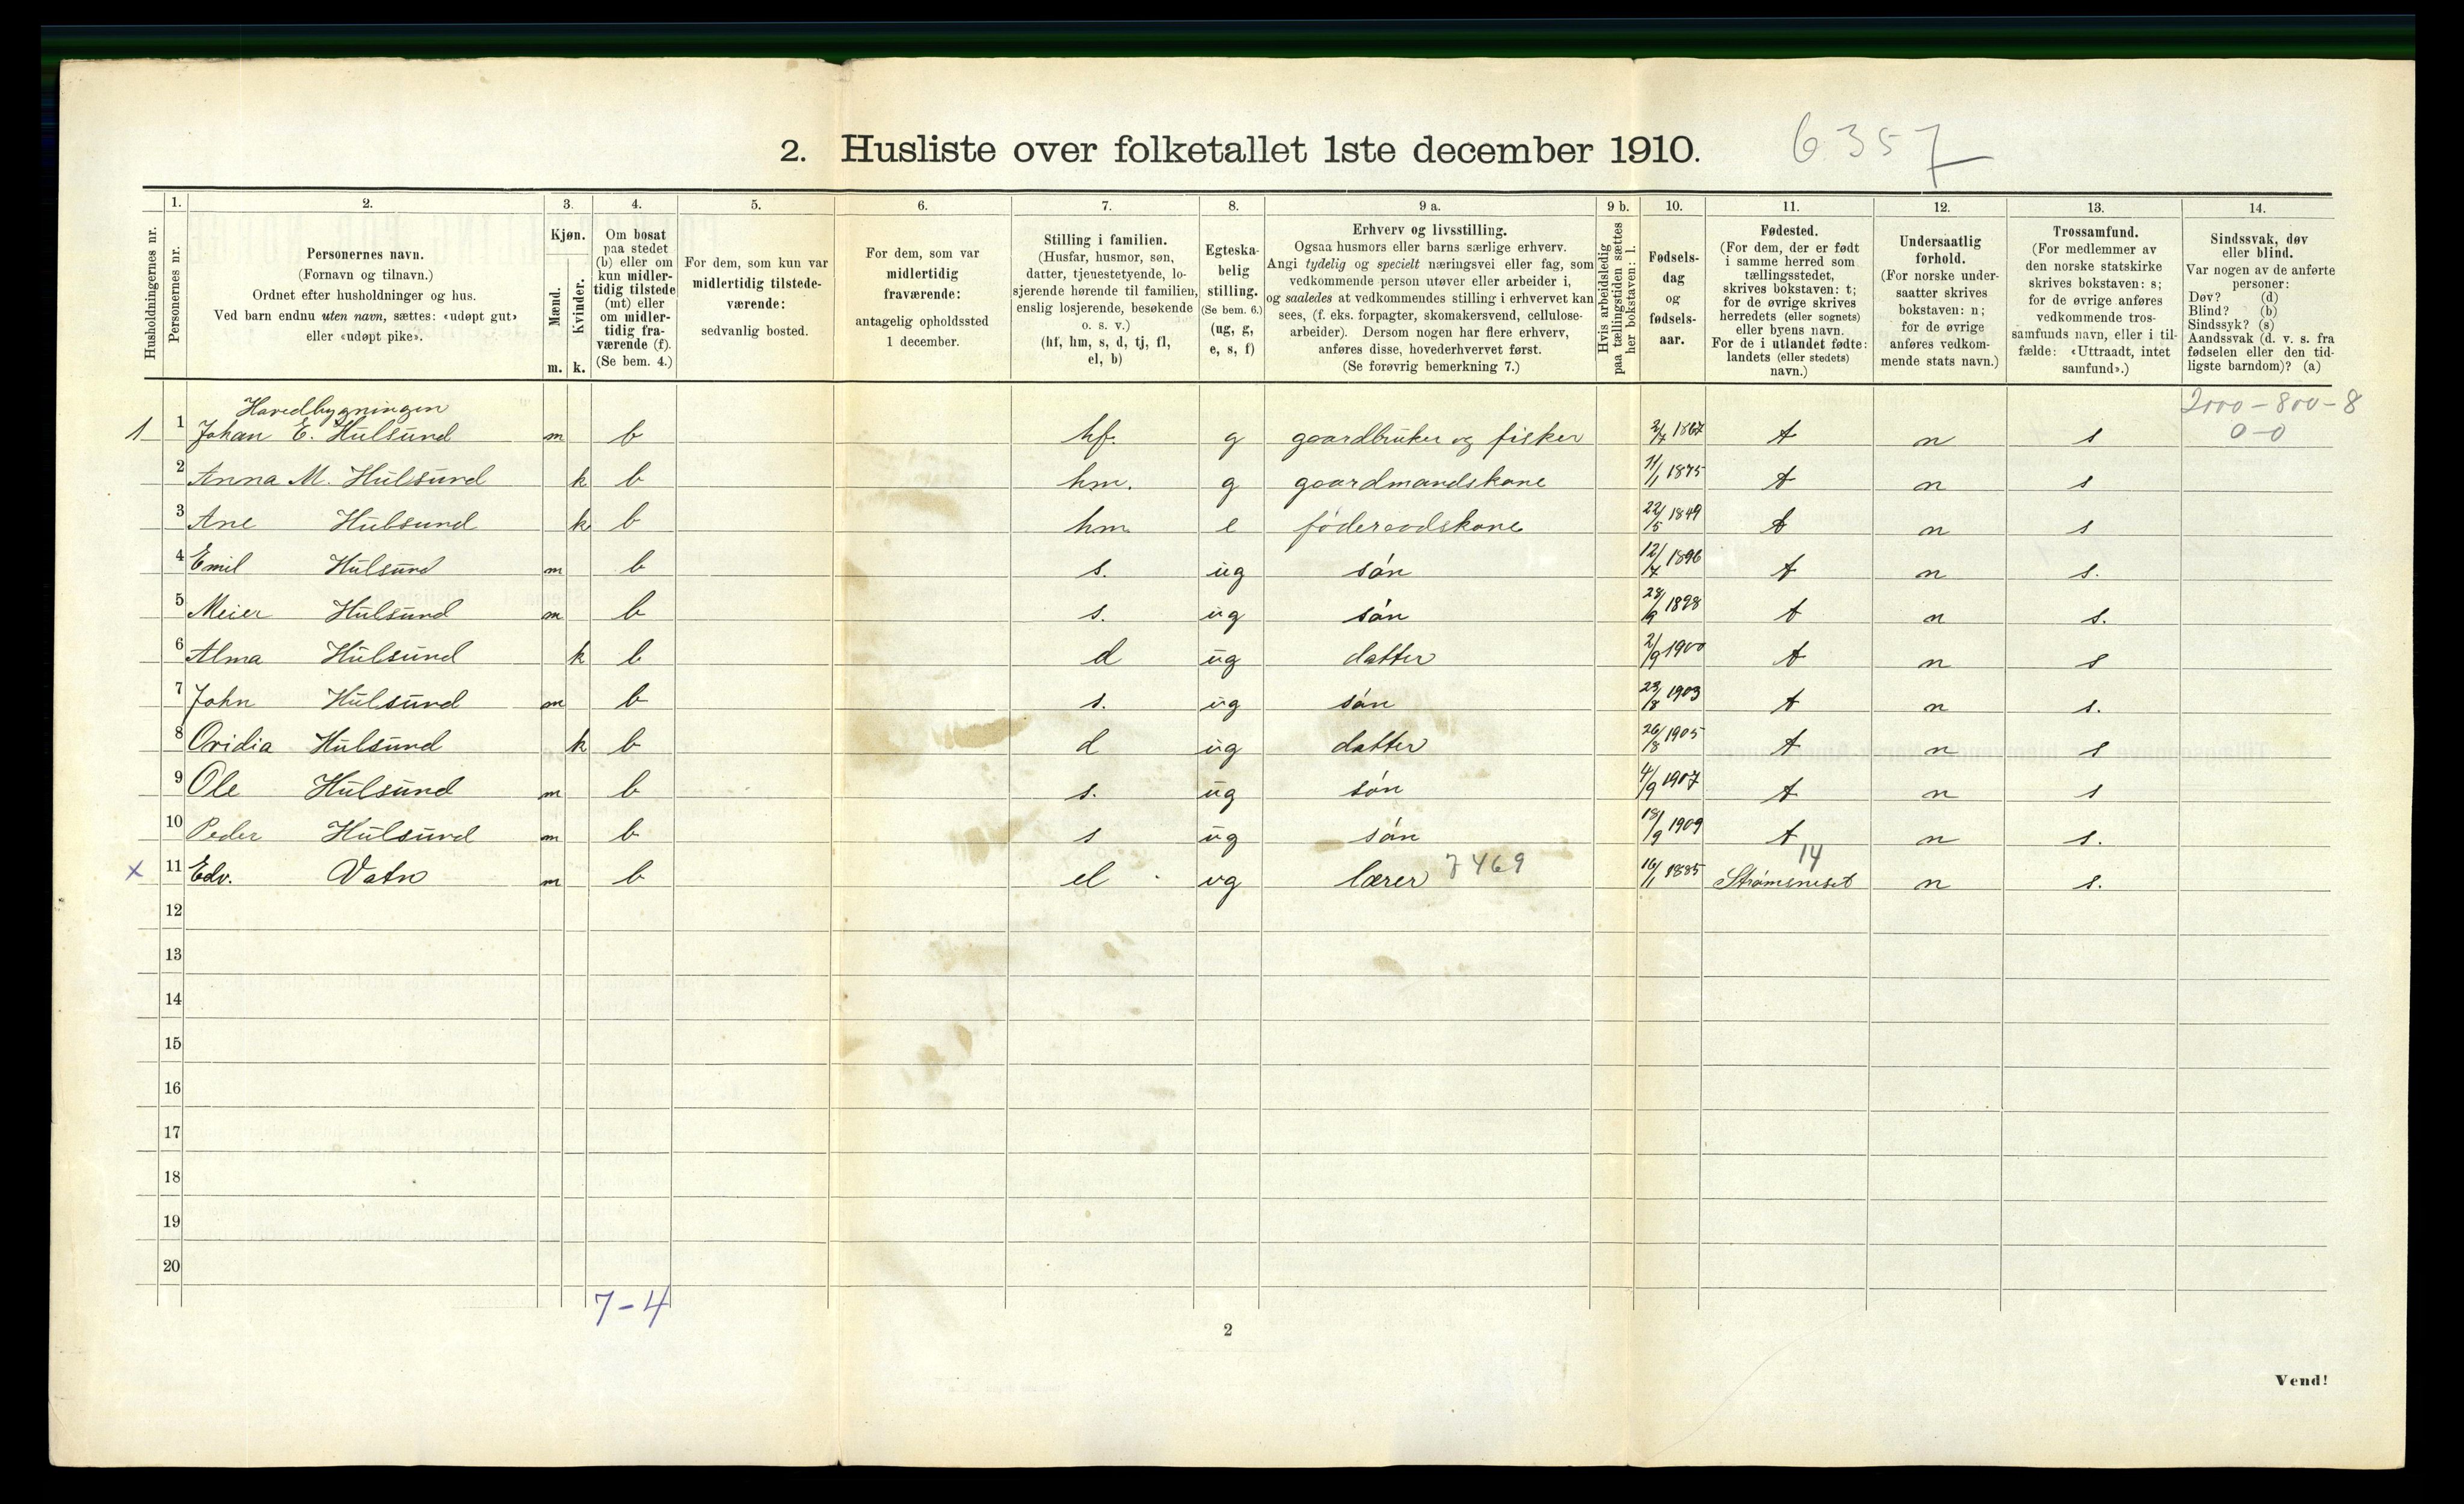 2. Husliste over folketallet 1ste december 1910. 6357
Husholdningernes nr.
1. Personernes nr.
2. Personernes navn.
(Fornavn og tilnavn.)
Ordnet efter husholdninger og hus.
Ved barn endnu uten navn, sættes: «udøpt gut»
eller «udøpt pike».
3. Kjøn.
Mænd. Kvinder.
m. k.
4. Om bosat
paa stedet
(b) eller om
kun midler-
tidig tilstede
(mt) eller
om midler-
tidig fra-
værende (f).
(Se bem. 4.)
5. For dem, som kun var
midlertidig tilstede-
værende:
sedvanlig bosted.
6. For dem, som var
midlertidig
fraværende:
antagelig opholdssted
1 december.
7. Stilling i familien.
(Husfar, husmor, søn,
datter, tjenestetyende, lo-
sjerende hørende til familien,
enslig losjerende, besøkende
o. s. v.)
(hf, hm, s, d, tj, fl,
el, b)
8. Egteska-
belig
stilling.
(Se bem. 6.)
(ug, g,
e, s, f)
9 a. Erhverv og livsstilling.
Ogsaa husmors eller barns særlige erhverv.
Angi tydelig og specielt næringsvei eller fag, som
vedkommende person utøver eller arbeider i,
og saaledes at vedkommendes stilling i erhvervet kan
sees, (f. eks. forpagter, skomakersvend, cellulose-
arbeider). Dersom nogen har flere erhverv,
anføres disse, hovederhvervet først.
(Se forøvrig bemerkning 7.)
9 b. Hvis arbeidsledig
paa tællingstiden sættes
her bokstaven: l.
10. Fødsels-
dag
og
fødsels-
aar.
11. Fødested.
(For dem, der er født
i samme herred som
tællingsstedet,
skrives bokstaven: t;
for de øvrige skrives
herredets (eller sognets)
eller byens navn.
For de i utlandet fødte:
landets (eller stedets)
navn.)
12. Undersaatlig
forhold.
(For norske under-
saatter skrives
bokstaven: n;
for de øvrige
anføres vedkom-
mende stats navn.)
13. Trossamfund.
(For medlemmer av
den norske statskirke
skrives bokstaven: s;
for de øvrige anføres
vedkommende tros-
samfunds navn, eller i til-
fælde: «Uttraadt, intet
samfund».)
14. Sindssvak, døv
eller blind.
Var nogen av de anførte
personer:
Døv? (d)
Blind? (b)
Sindssyk? (s)
Aandssvak (d. v. s. fra
fødselen eller den tid-
ligste barndom)? (a)
Havedbygningen 2000-800-8
1 1 Johan E. Hulsund m b hf. g gaardbruker og fisker 2/7 1867 t n s 0-0
2 Anna M. Hulsund k b hm. g gaardmandskone 11/1 1875 t n s
3 Ane Hulsund k b hm e føderaadskone 22/5 1849 t n s
4 Emil Hulsund m b s. ug søn 12/7 1896 t n s.
5 Meier Hulsund m b s. ug søn 28/9 1898 t n s.
6 Alma Hulsund k b d ug datter 2/9 1900 t n s
7 John Hulsund m b s. ug søn 23/8 1903 t n s.
8 Ovidia Hulsund k b d ug datter 26/8 1905 t n s
9 Ole Hulsund m b s. ug søn 4/9 1907 t n s
10 Peder Hulsund m b s ug søn 18/9 1909 t n s.
x 11 Edv. Vatn m b el ug lærer 7469 16/1 1885 14 Strømsneset n s.
12
13
14
15
16
17
18
19
20
7-4
2
Vend!